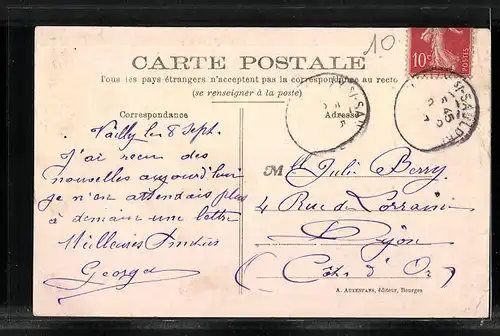 10
10c
POSTES
CARTE POSTALE
Tous les pays étrangers n'acceptent pas la correspondance au recto
(se renseigner à la poste)
Correspondance
Adresse
Vailly le 8 Sept.
J'ai reçu des
nouvelles aujourd'hui
je n'en attendais plus
à demain une lettre
Meilleures Amitiés
Georges
M lle Julie Berry
4 Rue de Lorraine
Dijon
(Côte d'Or)
A. AUXENFANS, éditeur, Bourges